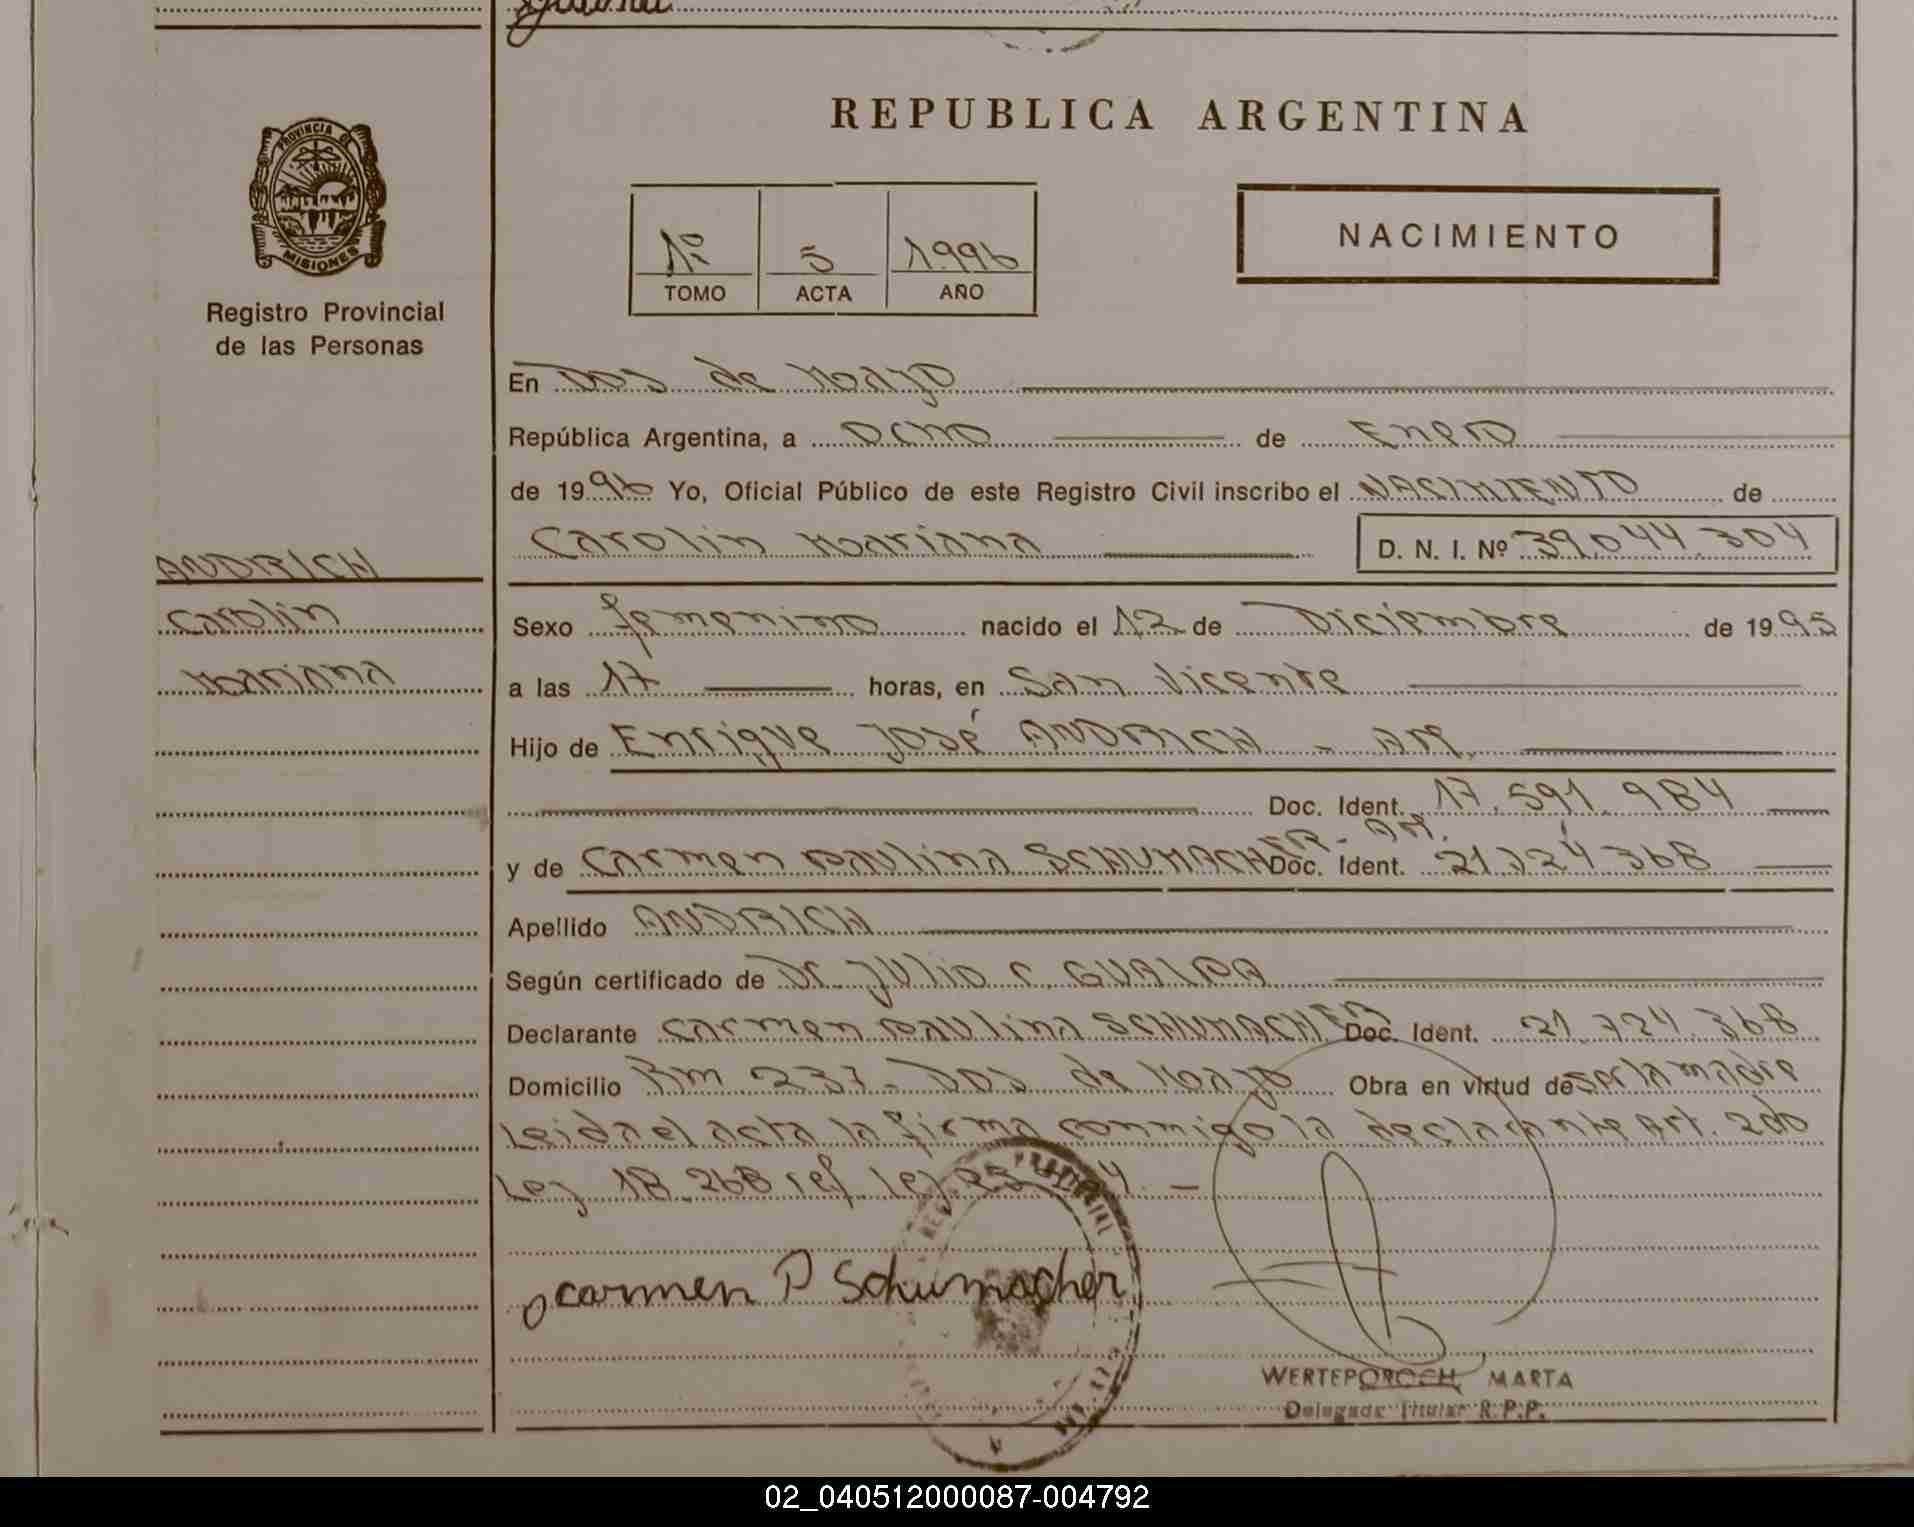 REPUBLICA ARGENTINA
PROVINCIA DE
MISIONES
Registro Provincial
de las Personas
1º 5 1996
TOMO ACTA AÑO
NACIMIENTO
En Dos de Mayo
República Argentina, a Ocho de Enero
de 1996 Yo, Oficial Público de este Registro Civil inscribo el NACIMIENTO de
Carolin Mariana D. N. I. Nº 39.044.304
ANDRICH
Carolin
Mariana
Sexo femenino nacido el 12 de Diciembre de 1995
a las 17 horas, en San Vicente
Hijo de Enrique José ANDRICH - AR.
Doc. Ident. 17.591.984
y de Carmen Paulina SCHUMACHER - AR. Doc. Ident. 21.724.368
Apellido ANDRICH
Según certificado de Dr. Julio C. GUALPA
Declarante Carmen Paulina SCHUMACHER Doc. Ident. 21.724.368
Domicilio Km 237 - Dos de Mayo Obra en virtud de ser la madre
Leida el acta la firma conmigo la declarante Art. 2do
Ley 18.268 ref. Ley
Carmen P Schumacher
WERTEPOROCH MARTA
Delegada Titular R.P.P.
02_040512000087-004792